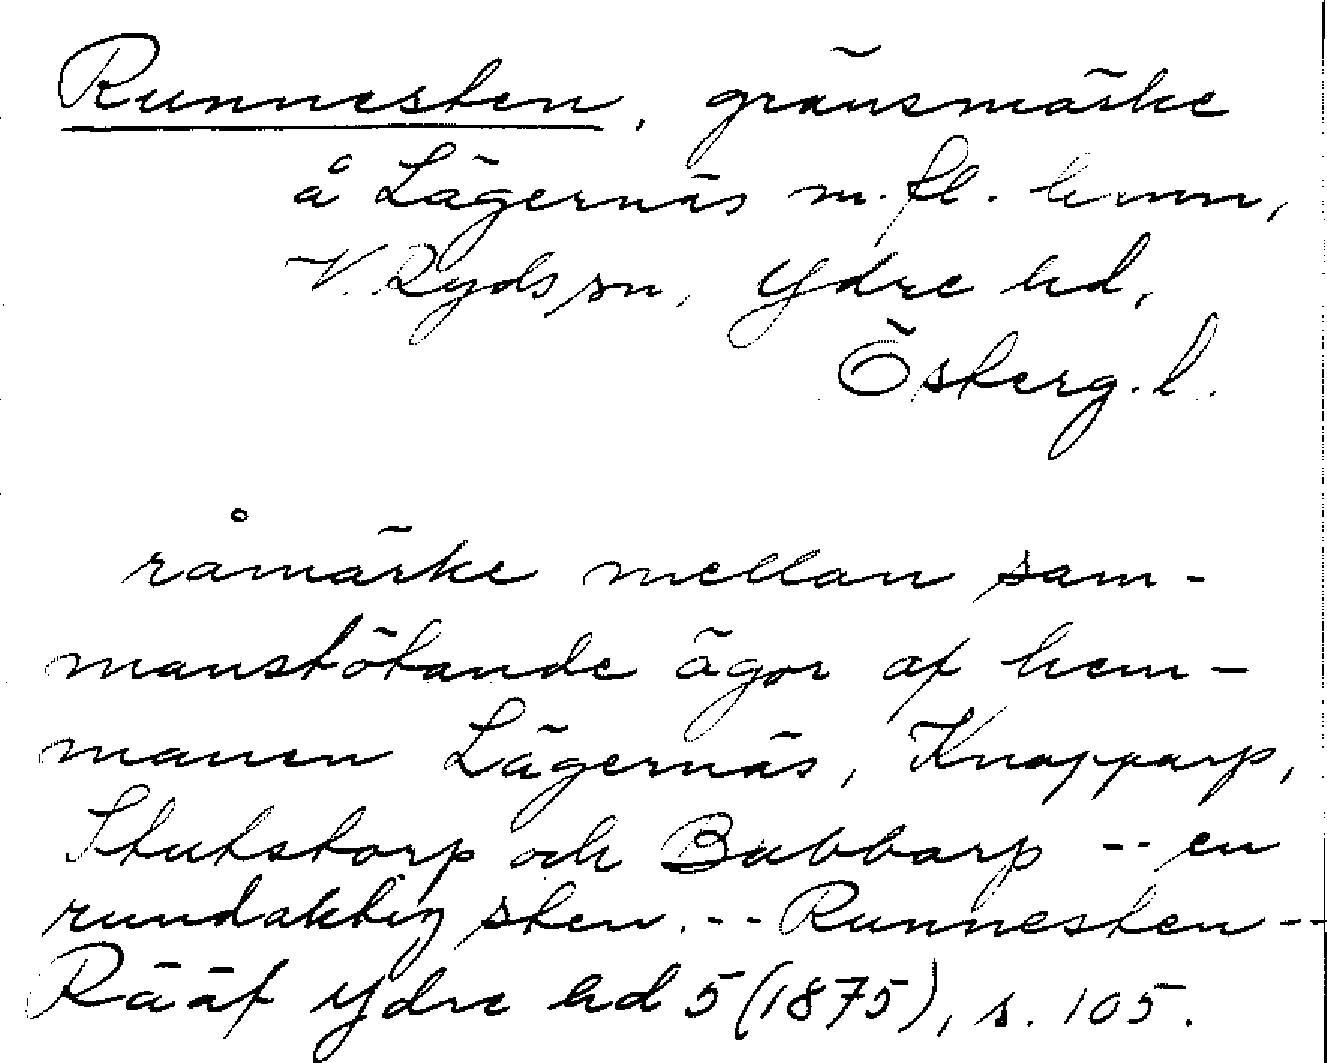 Runnesten, gränsmärke
å Lägernäs m.fl. hmn,
V. Ryds sn, Ydre hd,
Österg. l.
råmärke mellan sam-
manstötande ägor af hem-
manen Lägernäs, Knapparp,
Stutstorp och Bubbarp -- en
rundaktig sten. -- Runnesten --
Rääf Ydre hd 5 (1875), s. 105.